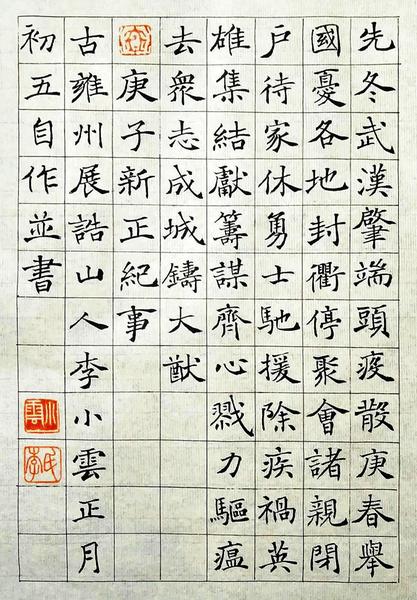 先冬武漢肇端頭疫散庚春舉
國憂各地封衢停聚會諸親閉
戶待家休勇士馳援除疾禍英
雄集結獻籌謀齊心戮力驅瘟
去衆志成城鑄大猷
庚子新正紀事
古雍州展誥山人李小雲正月
初五自作並書
小雲
李氏